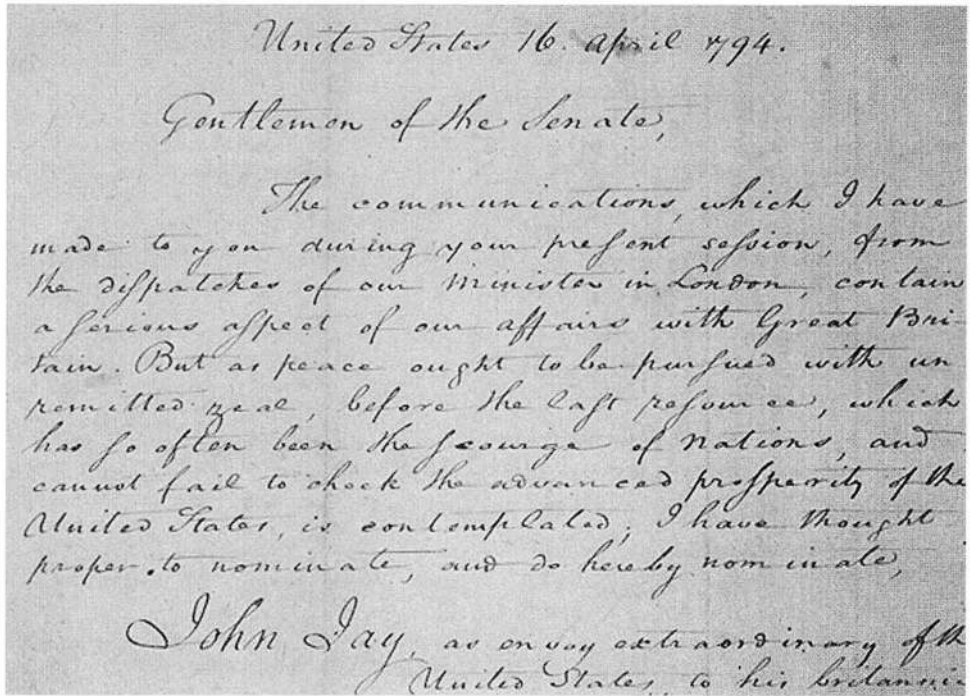 United States 16. April 1794.
Gentlemen of the Senate,
The communications, which I have
made to you during your present session, from
the dispatches of our Minister in London, contain
a serious aspect of our affairs with Great Bri-
tain. But as peace ought to be pursued with un
remitted zeal, before the last resource, which
has so often been the scourge of Nations, and
cannot fail to check the advanced prosperity of the
United States, is contemplated; I have thought
proper to nominate, and do hereby nominate,
John Jay, as envoy extraordinary of th
United States, to his britannic